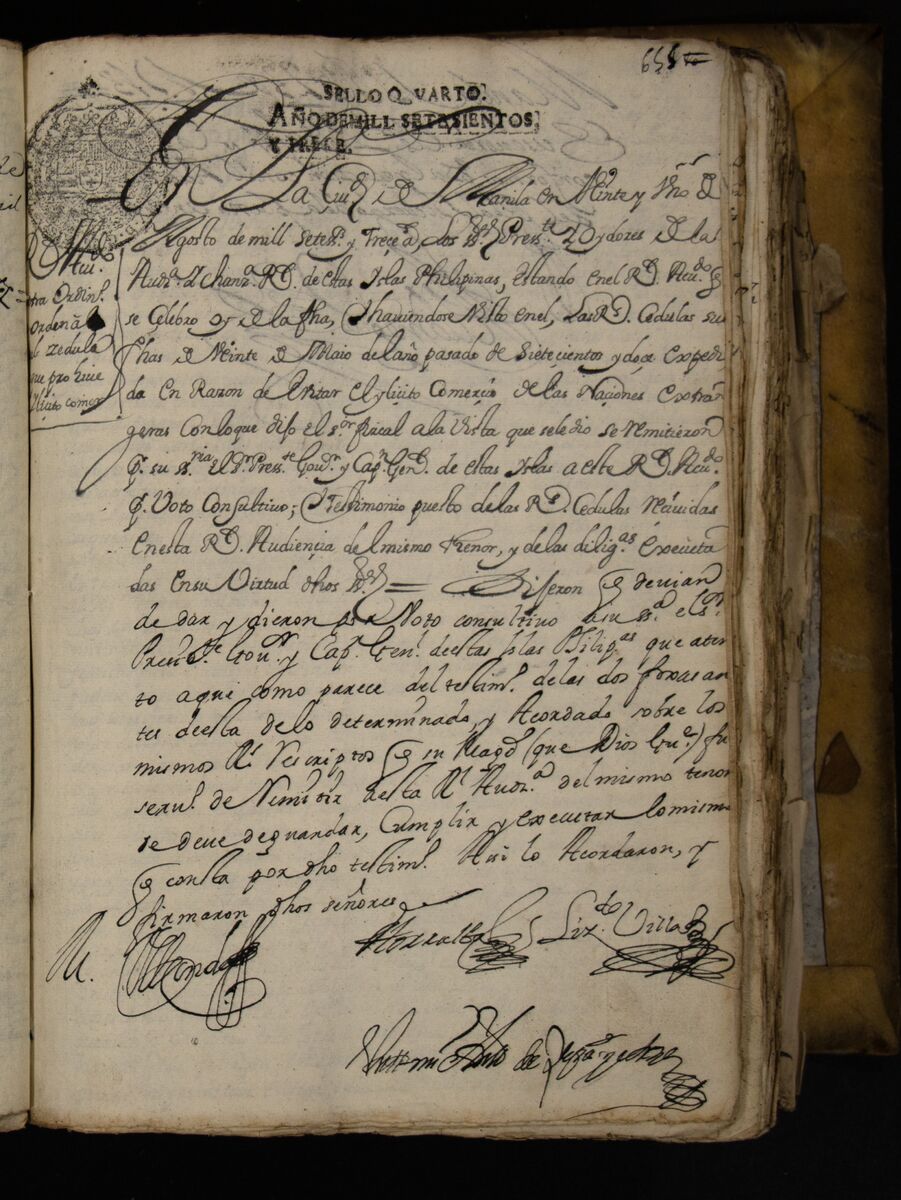 655
SELLO QVARTO.
AÑO DE MILL SETESIENTOS
Y TRECE.
En La Ciud de Manila en Veinte y Vno de
Agosto de mill setes.s y Trece a.s los S.res Press.te y oydores de la
Aud.a y chanz.a R.l de estas Yslas Philipinas, estando en el R.l Acu.do q
se Celebro oy de la fha, Y haviendose Visto en el, las R.s Cedulas su
fhas de Veinte de Maio del año pasado de Sietecientos y doce expedi
da en Razon de evitar el ylicito Comercio de las Naciones extran
geras Con lo que dijo el s.or fiscal a la Vista que sele dio se remitieron
p. su s.ria el S.r Press.te Gou.r y Cap.n Gen.l de estas Yslas a este R.l Acu.do
p. Voto Consultivo; Y testimonio puesto de las R.s Cedulas reciuidas
en esta R.l Audiencia del mismo thenor, y de las dilig.as execiuta
das en su Virtud dhos S.res = Dijeron q deuian
de dar y dieron por Voto consultivo a su s.a el s.r
Presid.te Gou.r y Cap.n Gen.l de estas Islas Philip.as que aten
to aqui como parece del testim.o de las dos foxas an
tes de esta de lo determinado, y Acordado sobre los
mismos R.s rescriptos q su Magd (que Dios Gu.e) fu
seru.o de Remitir a esta R.l Aud.a del mismo tenor
se deue de guardar, Cumplir y executar lo mismo
q consta por dho testim.o Asi lo Acordaron, y
firmaron dhos señores
Acu.do
extra Ordin.o
Ordena
l zedula
que prohive
Ylicito comer
Torralba
Liz.do Villa